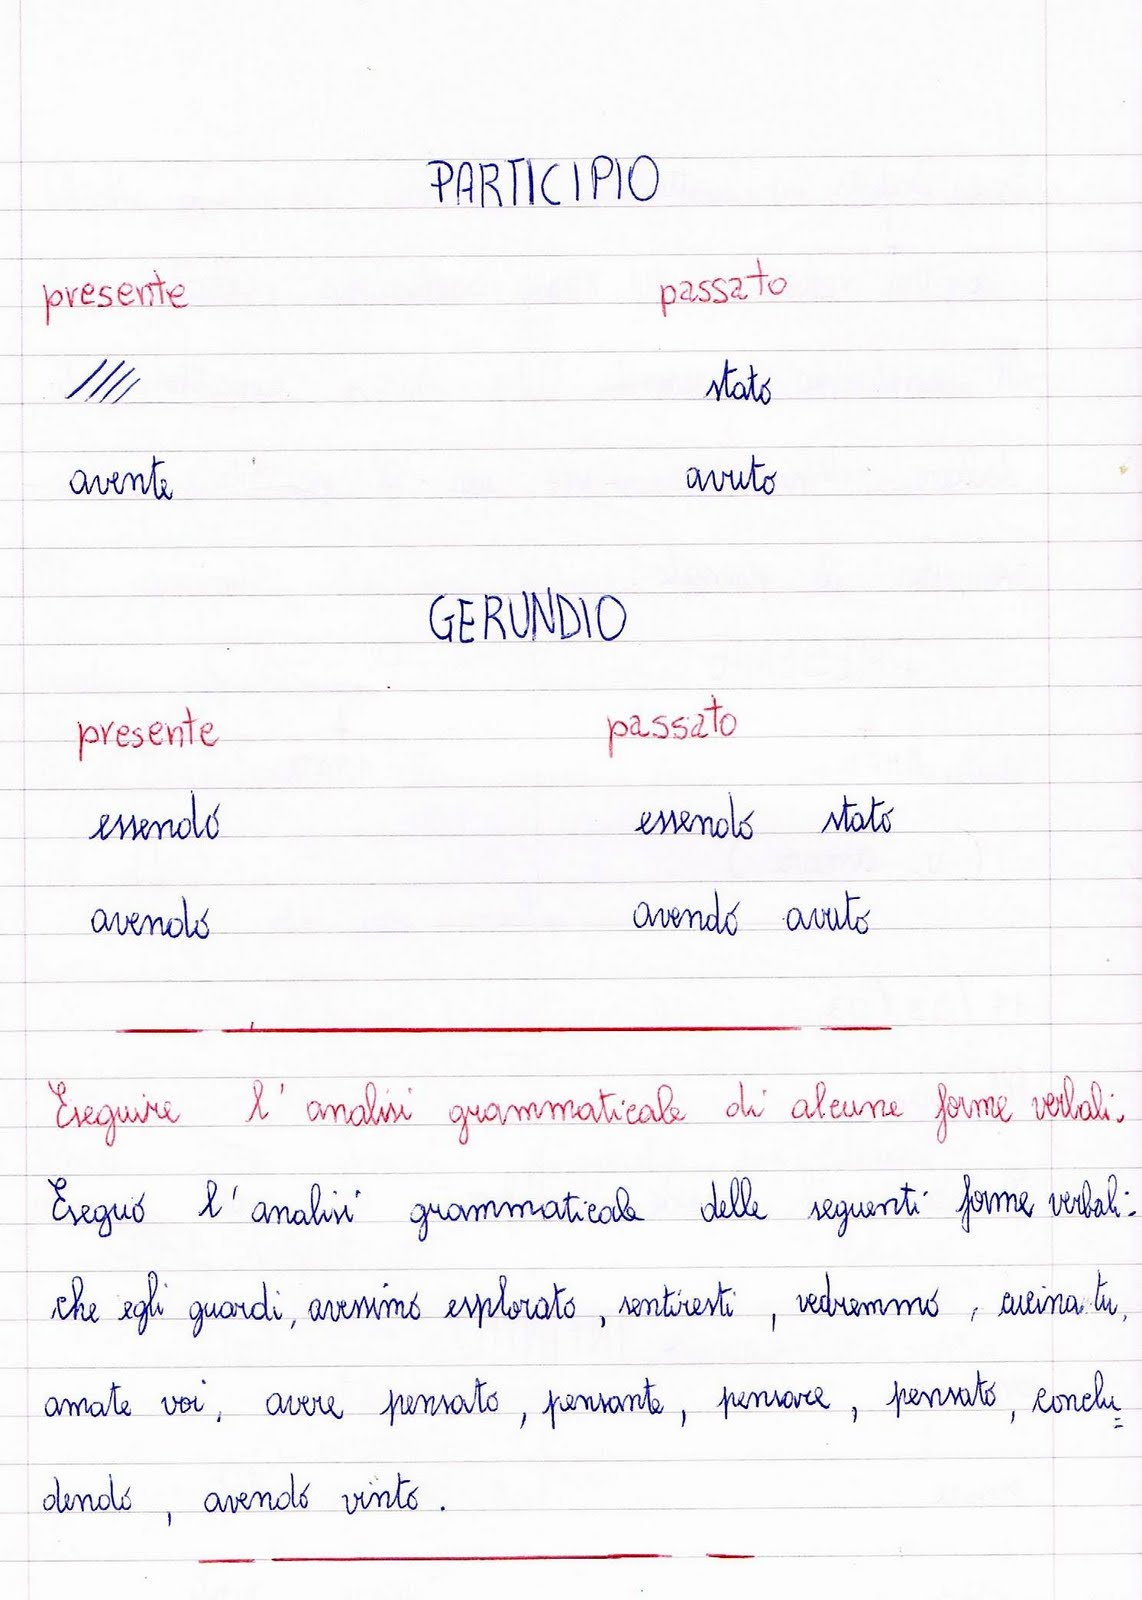 PARTICIPIO
presente passato
//// stato
avente avuto
GERUNDIO
presente passato
essendo essendo stato
avendo avendo avuto
Eseguire l'analisi grammaticale di alcune forme verbali.
Eseguo l'analisi grammaticale delle seguenti forme verbali:
che egli guardi, avessimo esplorato, sentiresti, vedremmo, cucina tu,
amate voi, avere pensato, pensante, pensare, pensato, conclu=
dendo, avendo vinto.